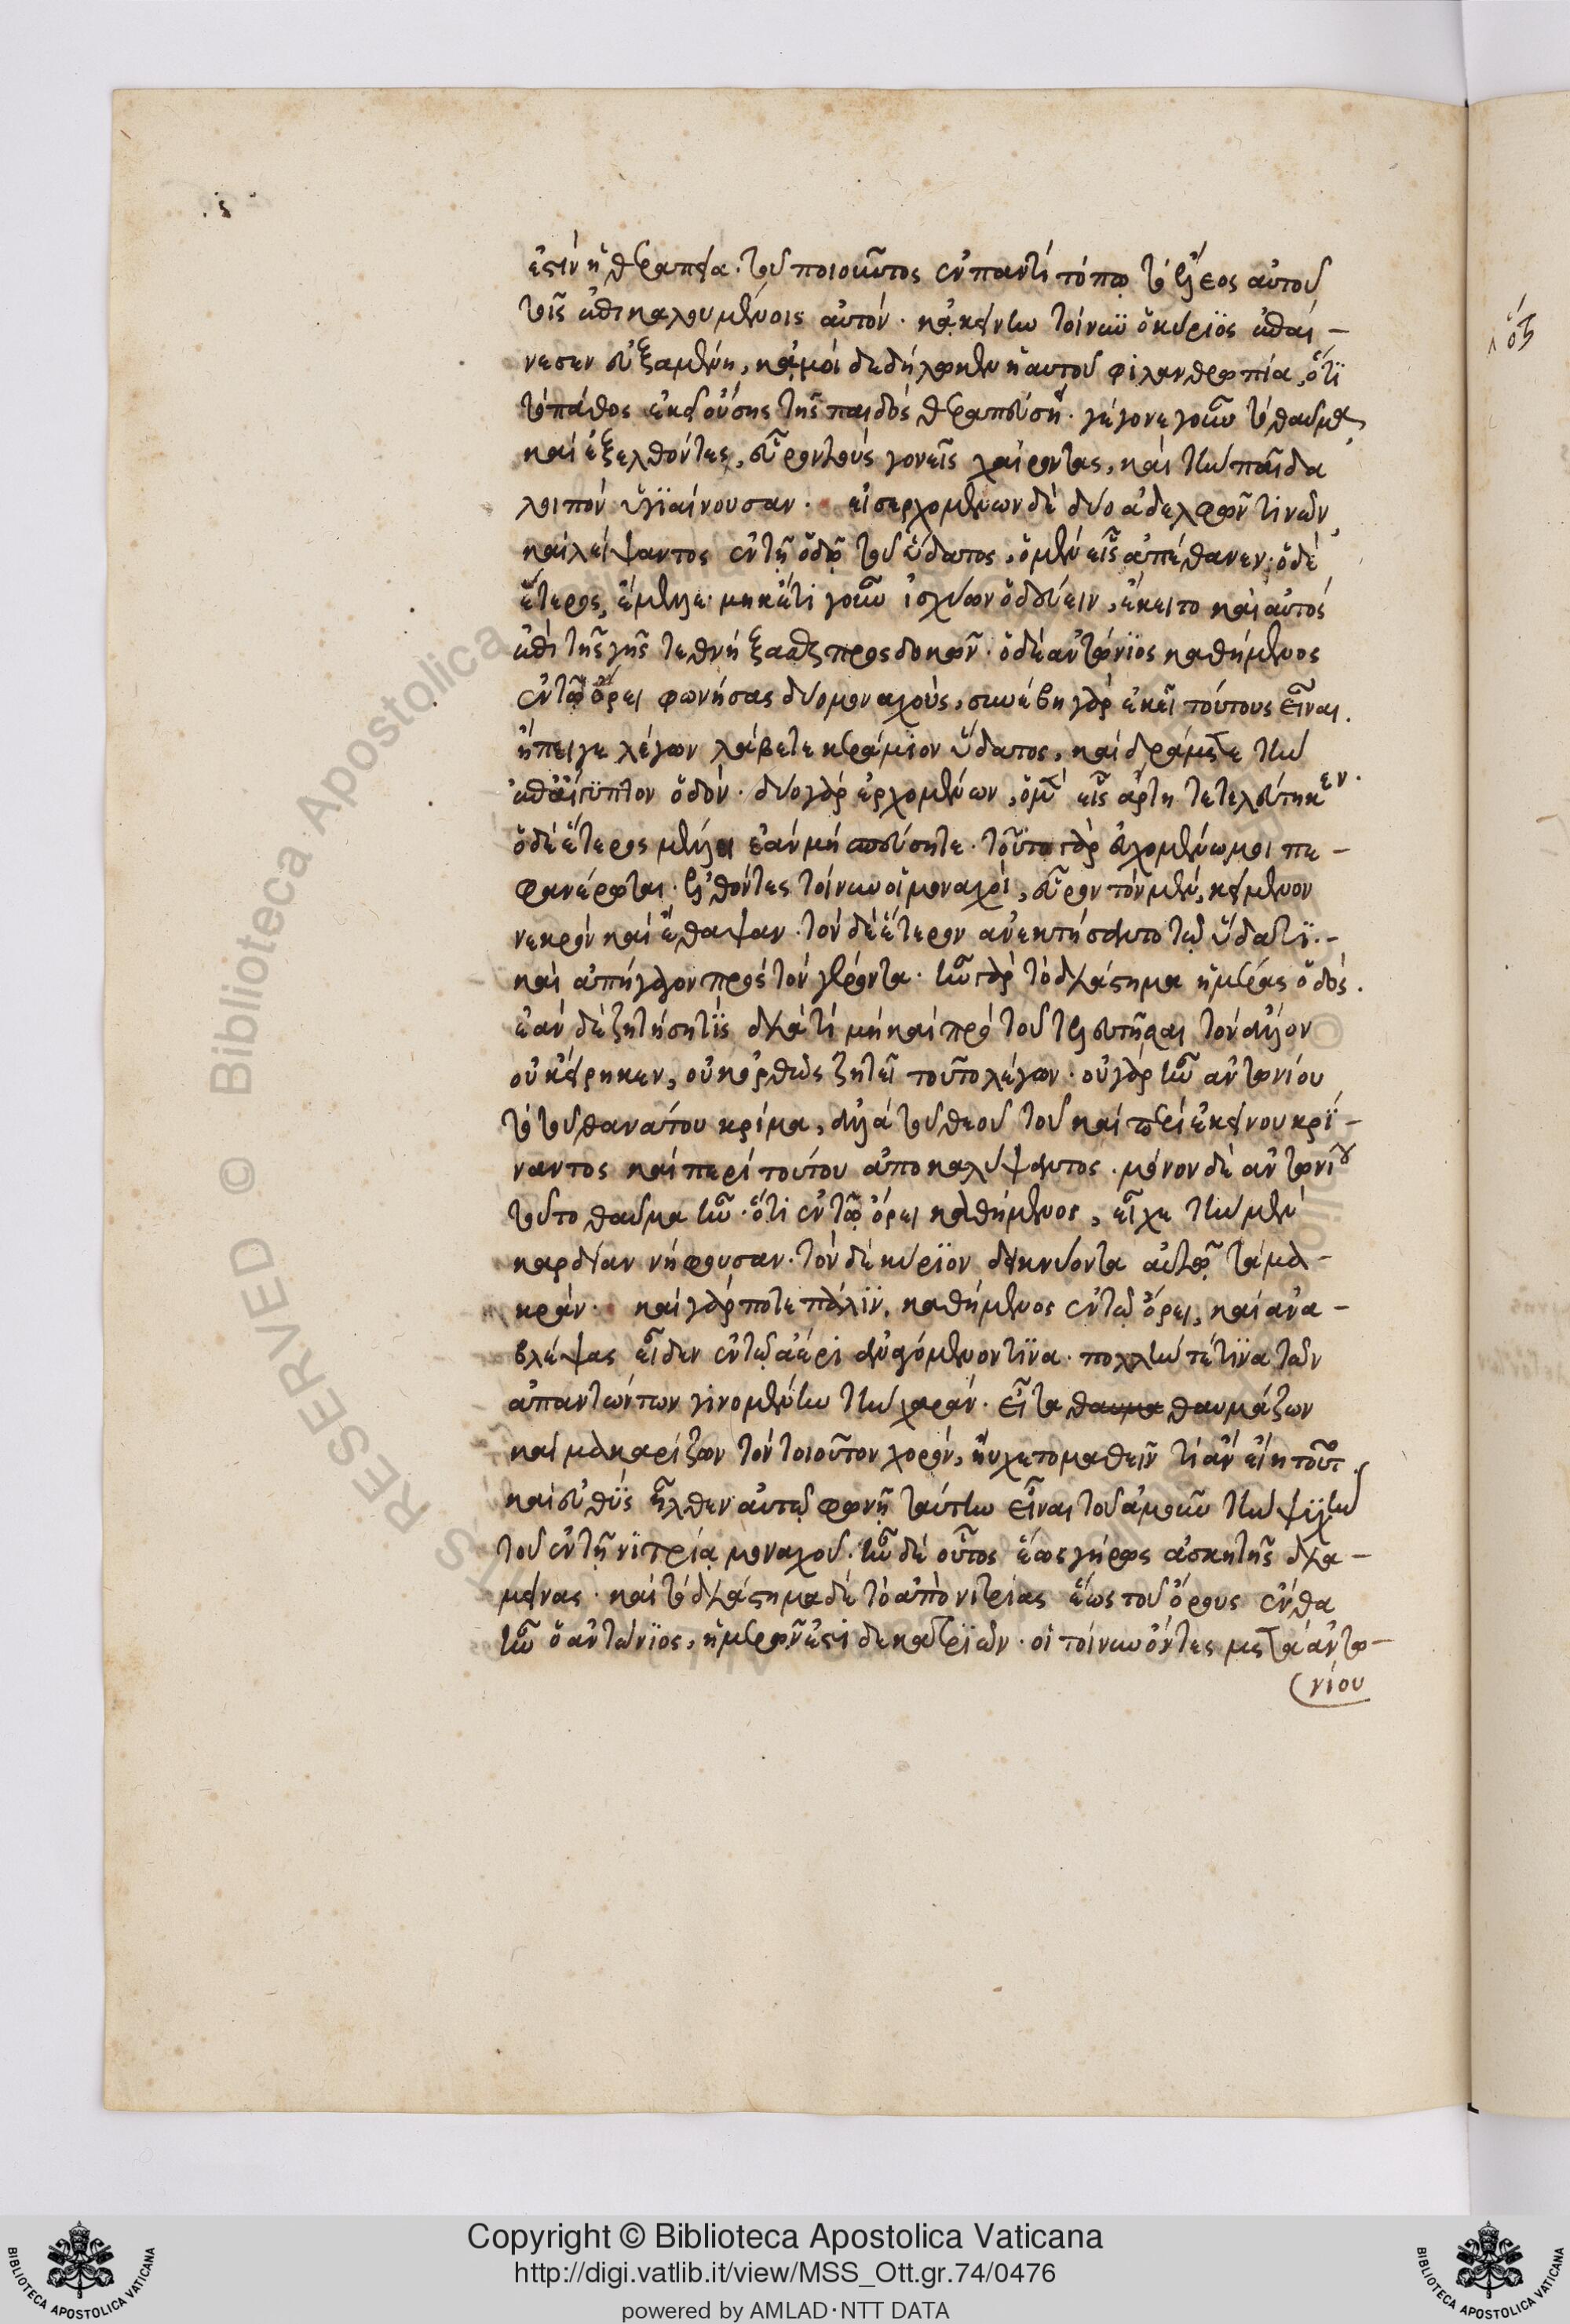 ἐστὶν ἡ θεραπεία· τοῦ ποιοῦντος ἐν παντὶ τόπῳ τὸ ἔλεος αὐτοῦ
τοῖς ἐπικαλουμένοις αὐτόν· κἀκείνην τοίνυν ὁ κύριος ἐπαί-
νεσεν εὐξαμένη, κἀμοὶ δεδήλωκεν ἡ αὐτοῦ φιλανθρωπία, ὅτι
τὸ πάθος ἐκεῖ οὔσης τῆς παιδὸς θεραπεύσει· γέγονε γοῦν τὸ θαῦμα,
καὶ ἐξελθόντες, εὗρον τοὺς γονεῖς χαίροντας, καὶ τὴν παῖδα
λοιπὸν ὑγιαίνουσαν· εἰσερχομένων δὲ δύο ἀδελφῶν τινῶν,
καὶ λείψαντος ἐν τῇ ὁδῷ τοῦ ὕδατος, ὁ μὲν εἷς ἀπέθανεν· ὁ δὲ
ἕτερος, ἔμελλε· μηκέτι γοῦν ἰσχύων ὁδεύειν, ἔκειτο καὶ αὐτὸς
ἐπὶ τῆς γῆς τεθνήξασθαι προσδοκῶν· ὁ δὲ ἀντώνιος καθήμενος
ἐν τῷ ὄρει φωνήσας δύο μοναχούς, συνέβη γὰρ ἐκεῖ τούτους εἶναι.
ἤπειγε λέγων λάβετε κεράμιον ὕδατος, καὶ δράμετε τὴν
ἐπ' αἴγυπτον ὁδόν· δύο γὰρ ἐρχομένων, ὁ μὲν εἷς ἄρτι τετελεύτηκεν·
ὁ δὲ ἕτερος μέλλει ἐὰν μὴ σπεύσητε· τοῦτο γὰρ εὐχομένω μοι πε-
φανέρωται· ἐλθόντες τοίνυν οἱ μοναχοί, εὗρον τὸν μὲν, κείμενον
νεκρὸν καὶ ἔθαψαν· τὸν δὲ ἕτερον ἀνεκτήσαντο τῷ ὕδατι·-
καὶ ἀπήγαγον πρὸς τὸν γέροντα· ἦν γὰρ τὸ διάστημα ἡμέρας ὁδός.
ἐὰν δὲ ζητήσῃ τὶς διὰ τί μὴ καὶ πρὸ τοῦ τελευτῆσαι τὸν ἄλλον
οὐκ εἴρηκεν, οὐκ ὀρθῶς ζητεῖ τοῦτο λέγων· οὐ γὰρ ἦν ἀντωνίου
τὸ τοῦ θανάτου κρίμα, ἀλλὰ τοῦ θεοῦ τοῦ καὶ περὶ ἐκείνου κρί-
ναντος καὶ περὶ τούτου ἀποκαλύψαντος· μόνον δὲ ἀντωνίου
τοῦτο θαῦμα ἦν· ὅτι ἐν τῷ ὄρει καθήμενος, εἶχε τὴν μὲν
καρδίαν νήφουσαν· τὸν δὲ κύριον δεικνύοντα αὐτῷ τὰ μα-
κράν· καὶ γὰρ ποτε πάλιν, καθήμενος ἐν τῷ ὄρει, καὶ ἀνα-
βλέψας εἶδεν ἐν τῷ ἀέρι ἀναγόμενον τινα· πολλὴν τέ τινα τῶν
ἀπαντώντων γινομένην τὴν χαράν· εἶτα θαυμα θαυμάζων
καὶ μακαρίζων τὸν τοιοῦτον χορόν, ηὔχετο μαθεῖν τί ἂν εἴη τοῦτο.
καὶ εὐθὺς ἦλθεν αὐτῷ φωνῇ ταύτην εἶναι τοῦ ἀμοῦν τὴν ψυχὴν
τοῦ ἐν τῇ νιτρίᾳ μοναχοῦ· ἦν δὲ οὗτος ἕως γήρως ἀσκητὴς δια-
μείνας· καὶ τὸ διάστημα δὲ τὸ ἀπὸ νιτρίας ἕως τοῦ ὄρους ἔνθα
ἦν ὁ ἀντώνιος, ἡμερῶν ἐστὶ δεκατριῶν· οἱ τοίνυν ὄντες μετὰ ἀντω-
νίου
Copyright © Biblioteca Apostolica Vaticana
http://digi.vatlib.it/view/MSS_Ott.gr.74/0476
powered by AMLAD·NTT DATA